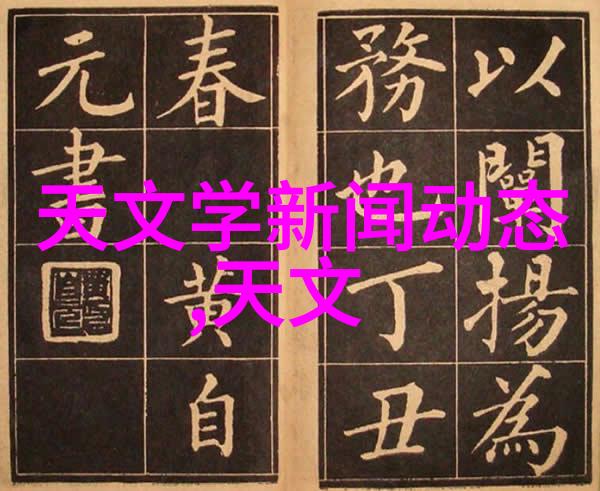 以闡揚為
務也丁丑
春黄自
元書
天文学新闻动态
,天文